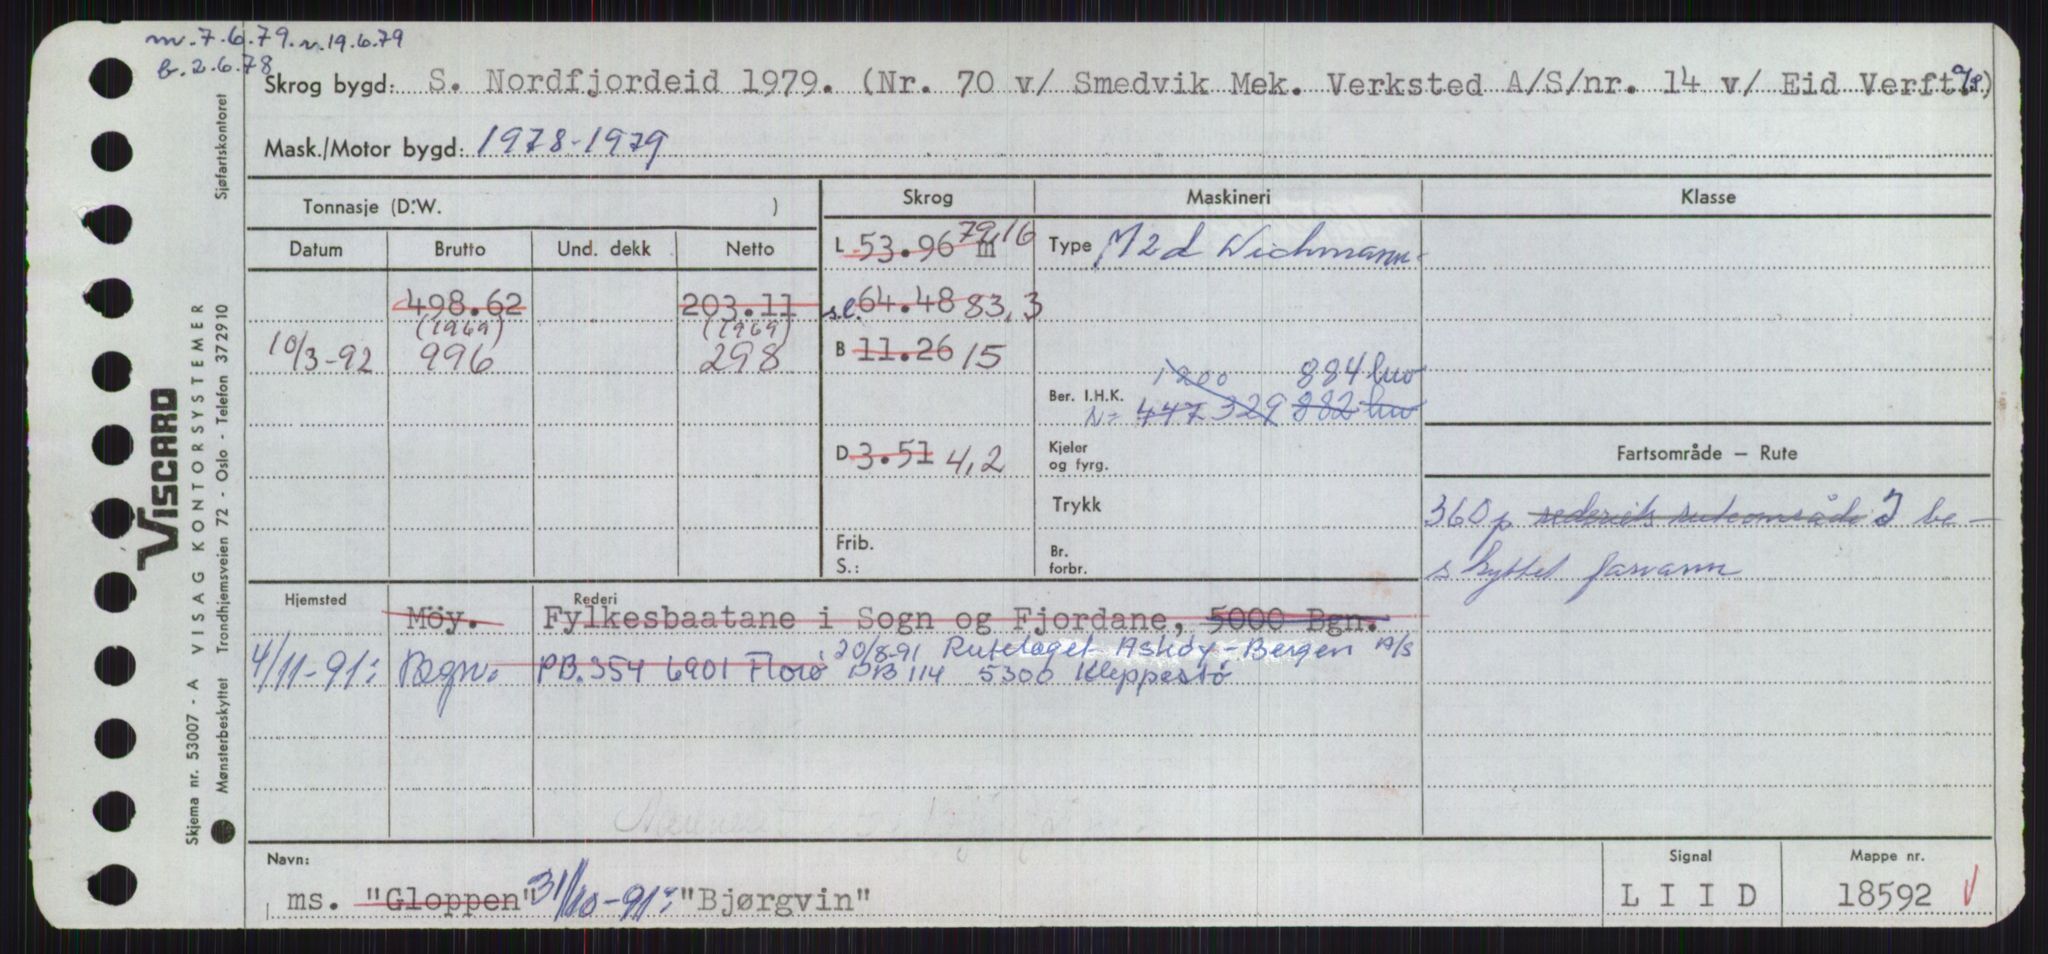 m. 7.6.79. n. 19.6.79
b. 2.6.78
Skrog bygd: S. Nordfjordeid 1979. (Nr. 70 v/ Smedvik Mek. Verksted A/S/nr. 14 v/ Eid Verft a/s.)
Mask./Motor bygd: 1978-1979
Tonnasje (D.W. ) Skrog Maskineri Klasse
Datum Brutto Und. dekk Netto L 53.96 m 79,16 Type M2d Wichmann
498.62 203.11 s.l. 64.48 83,3
(1969) (1969)
10/3-92 996 298 B 11.26 15
1200 884 hw
Ber. I.H.K. N= 447 329 882 hw
D 3.51 4,2 Kjeler og fyrg. Fartsområde – Rute
Trykk 360 p rederiets ruteområde I be-
Frib. Br. skyttet farvann
S.: forbr.
Hjemsted Rederi
Möy. Fylkesbaatane i Sogn og Fjordane, 5000 Bgn.
20/8-91 Rutelaget Askøy-Bergen A/S
4/11-91: Bgn. PB. 354 6901 Florø PB 114 5300 Kleppestø
Navn: Signal Mappe nr.
ms. "Gloppen" 31/10-91: "Bjørgvin" L I I D 18592
VISCARD
Skjema nr. 53007 - A VISAG KONTORSYSTEMER
Mønsterbeskyttet Trondhjemsveien 72 - Oslo - Telefon 372910
Sjøfartskontoret